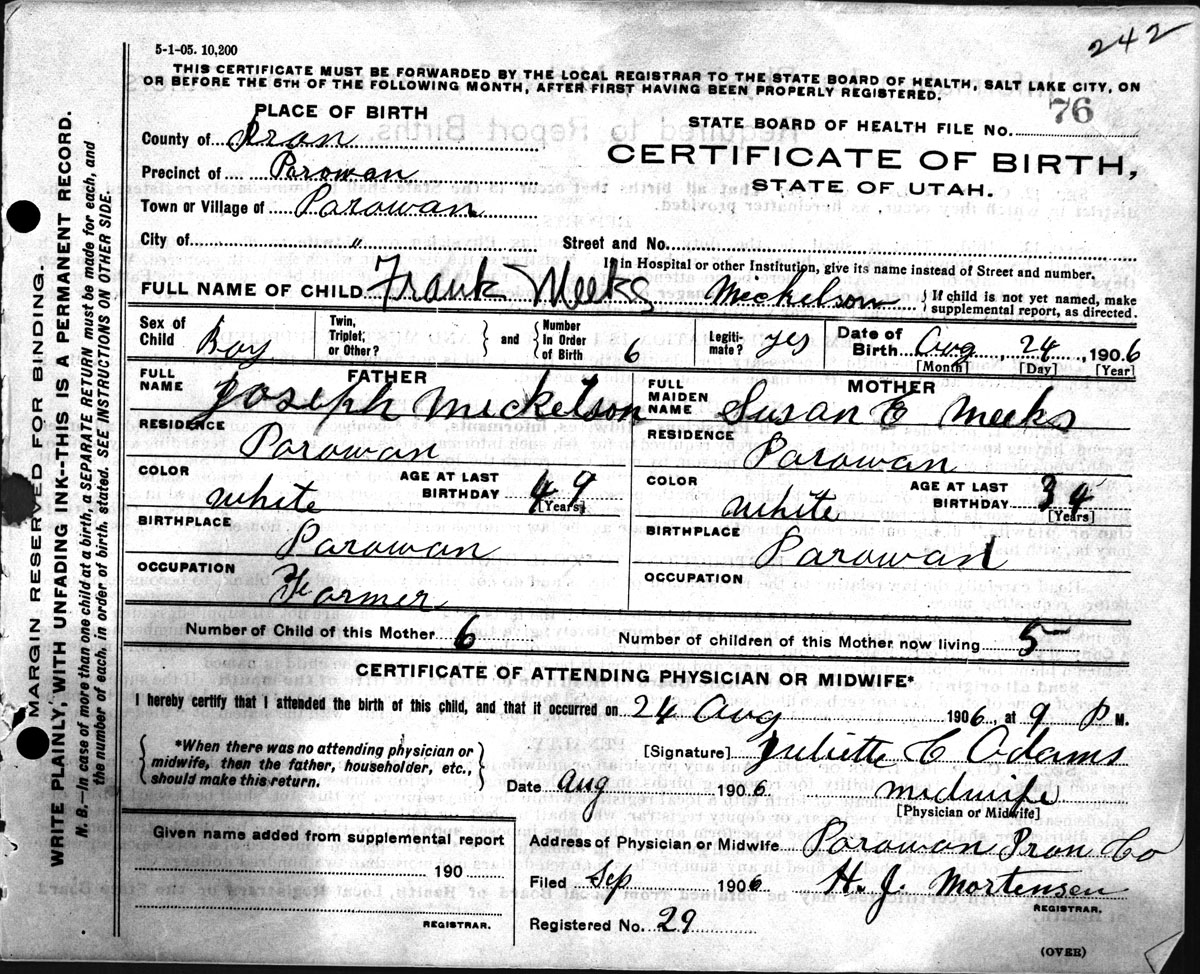 242
5-1-05. 10,200
THIS CERTIFICATE MUST BE FORWARDED BY THE LOCAL REGISTRAR TO THE STATE BOARD OF HEALTH, SALT LAKE CITY, ON
OR BEFORE THE 5TH OF THE FOLLOWING MONTH, AFTER FIRST HAVING BEEN PROPERLY REGISTERED.
PLACE OF BIRTH
STATE BOARD OF HEALTH FILE NO. 76
County of Iron
CERTIFICATE OF BIRTH,
Precinct of Parowan
STATE OF UTAH.
Town or Village of Parowan
City of " Street and No.
If in Hospital or other Institution, give its name instead of Street and number.
FULL NAME OF CHILD Frank Meeks Mickelson } If child is not yet named, make supplemental report, as directed.
Sex of Child Boy Twin, Triplet, or Other? } and { Number in Order of Birth 6 Legiti-mate? yes Date of Birth Aug, 24, 1906
[Month] [Day] [Year]
FATHER
FULL NAME Joseph Mickelson
MOTHER
FULL MAIDEN NAME Susan E Meeks
RESIDENCE Parowan
RESIDENCE Parowan
COLOR white AGE AT LAST BIRTHDAY 49 [Years]
COLOR white AGE AT LAST BIRTHDAY 34 [Years]
BIRTHPLACE Parowan
BIRTHPLACE Parowan
OCCUPATION Farmer
OCCUPATION
Number of Child of this Mother 6 Number of children of this Mother now living 5
CERTIFICATE OF ATTENDING PHYSICIAN OR MIDWIFE*
I hereby certify that I attended the birth of this child, and that it occurred on 24 Aug 1906, at 9 P M.
{ *When there was no attending physician or midwife, then the father, householder, etc., should make this return. }
[Signature] Juliette C Adams
Date Aug 1906 midwife
[Physician or Midwife]
Given name added from supplemental report
190
REGISTRAR.
Address of Physician or Midwife Parowan Iron Co
Filed Sep, 1906 H. J. Mortensen
REGISTRAR.
Registered No. 29
(OVER)
MARGIN RESERVED FOR BINDING.
WRITE PLAINLY, WITH UNFADING INK--THIS IS A PERMANENT RECORD.
N. B.—In case of more than one child at a birth, a SEPARATE RETURN must be made for each, and
the number of each, in order of birth, stated. SEE INSTRUCTIONS ON OTHER SIDE.